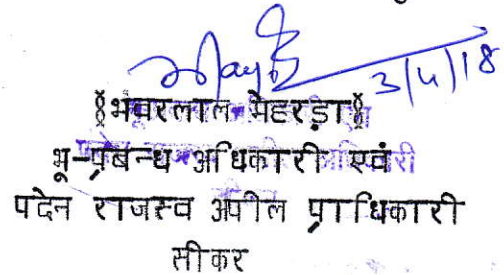 3/4/18
§भंवरलाल मेहरड़ा§
भू-प्रबन्ध अधिकारी एवं
पदेन राजस्व अपील प्राधिकारी
सीकर